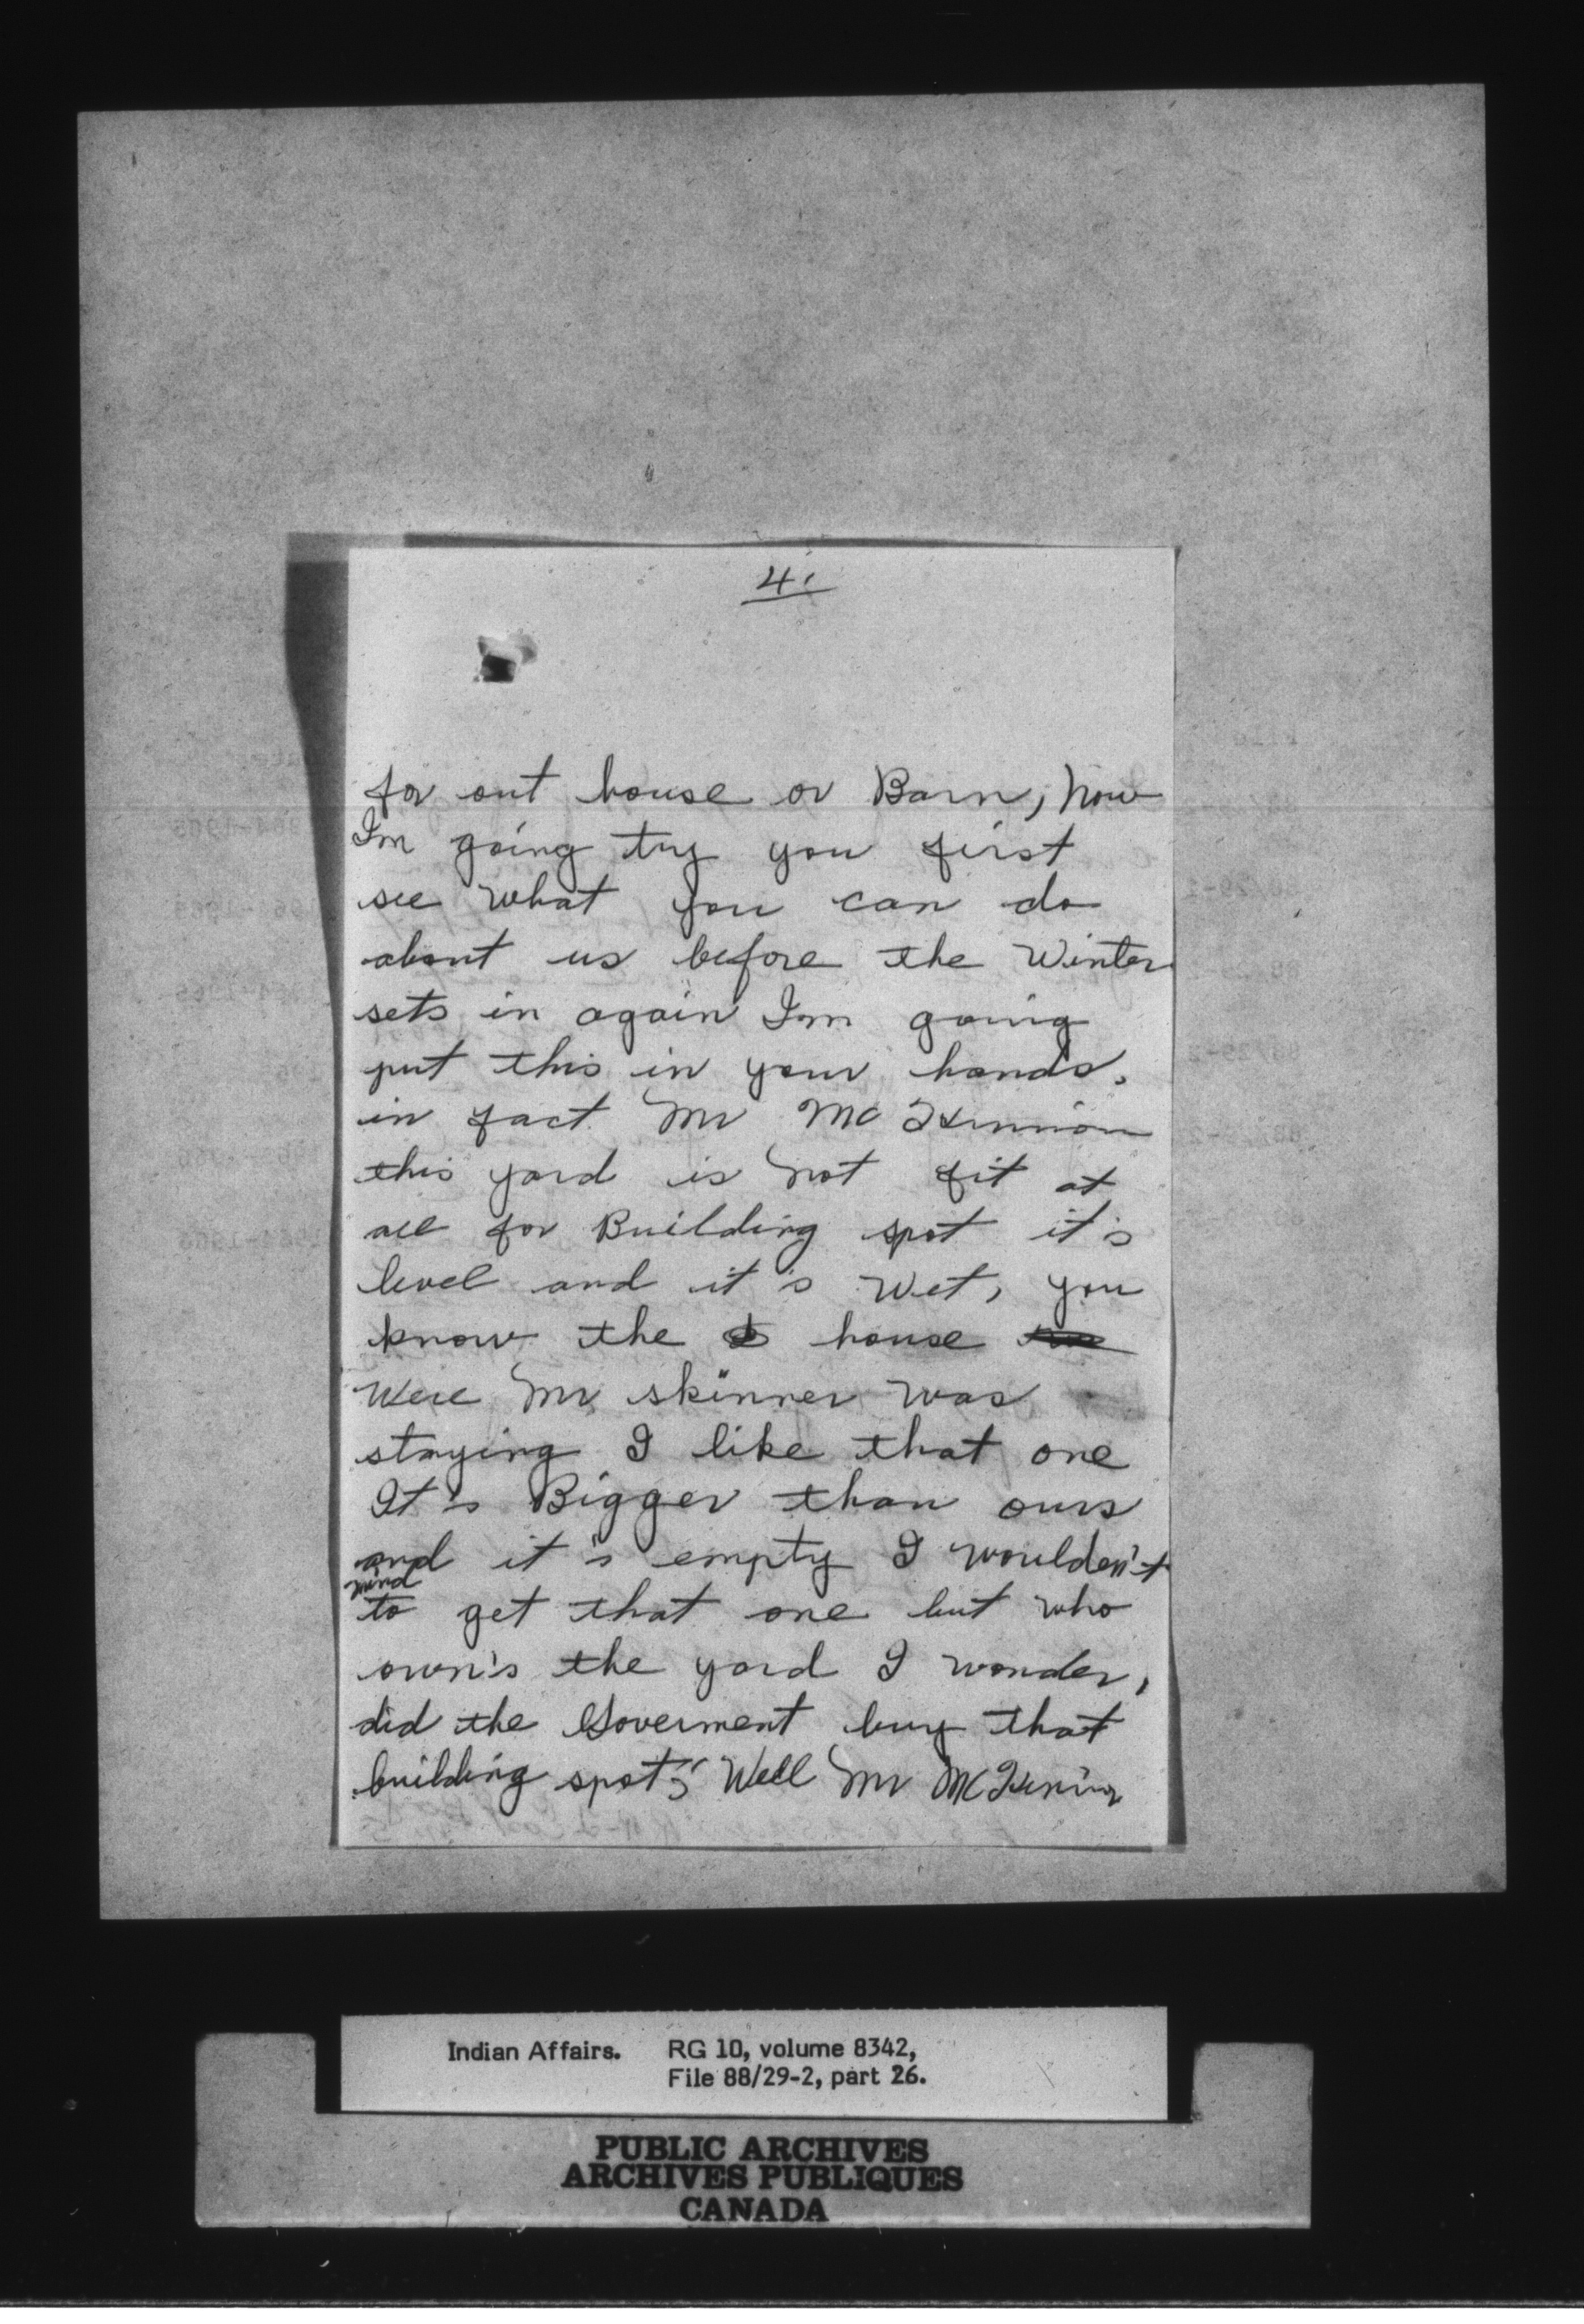 4.
for out house or Barn; Now
I'm going try you first
see what you can do
about us before the Winter
sets in again I'm going
put this in your hands,
in fact Mr Mc Kinnion
this yard is not fit at
all for Building spot it's
level and it's Wet, you
know the house
Were Mr skinner was
staying I like that one
It's Bigger than ours
and it's empty I woulden't
mind
to get that one but who
own's the yard I wonder,
did the Goverment buy that
building spot; Well Mr
Indian Affairs. RG 10, volume 8342,
File 88/29-2, part 26.
PUBLIC ARCHIVES
ARCHIVES PUBLIQUES
CANADA